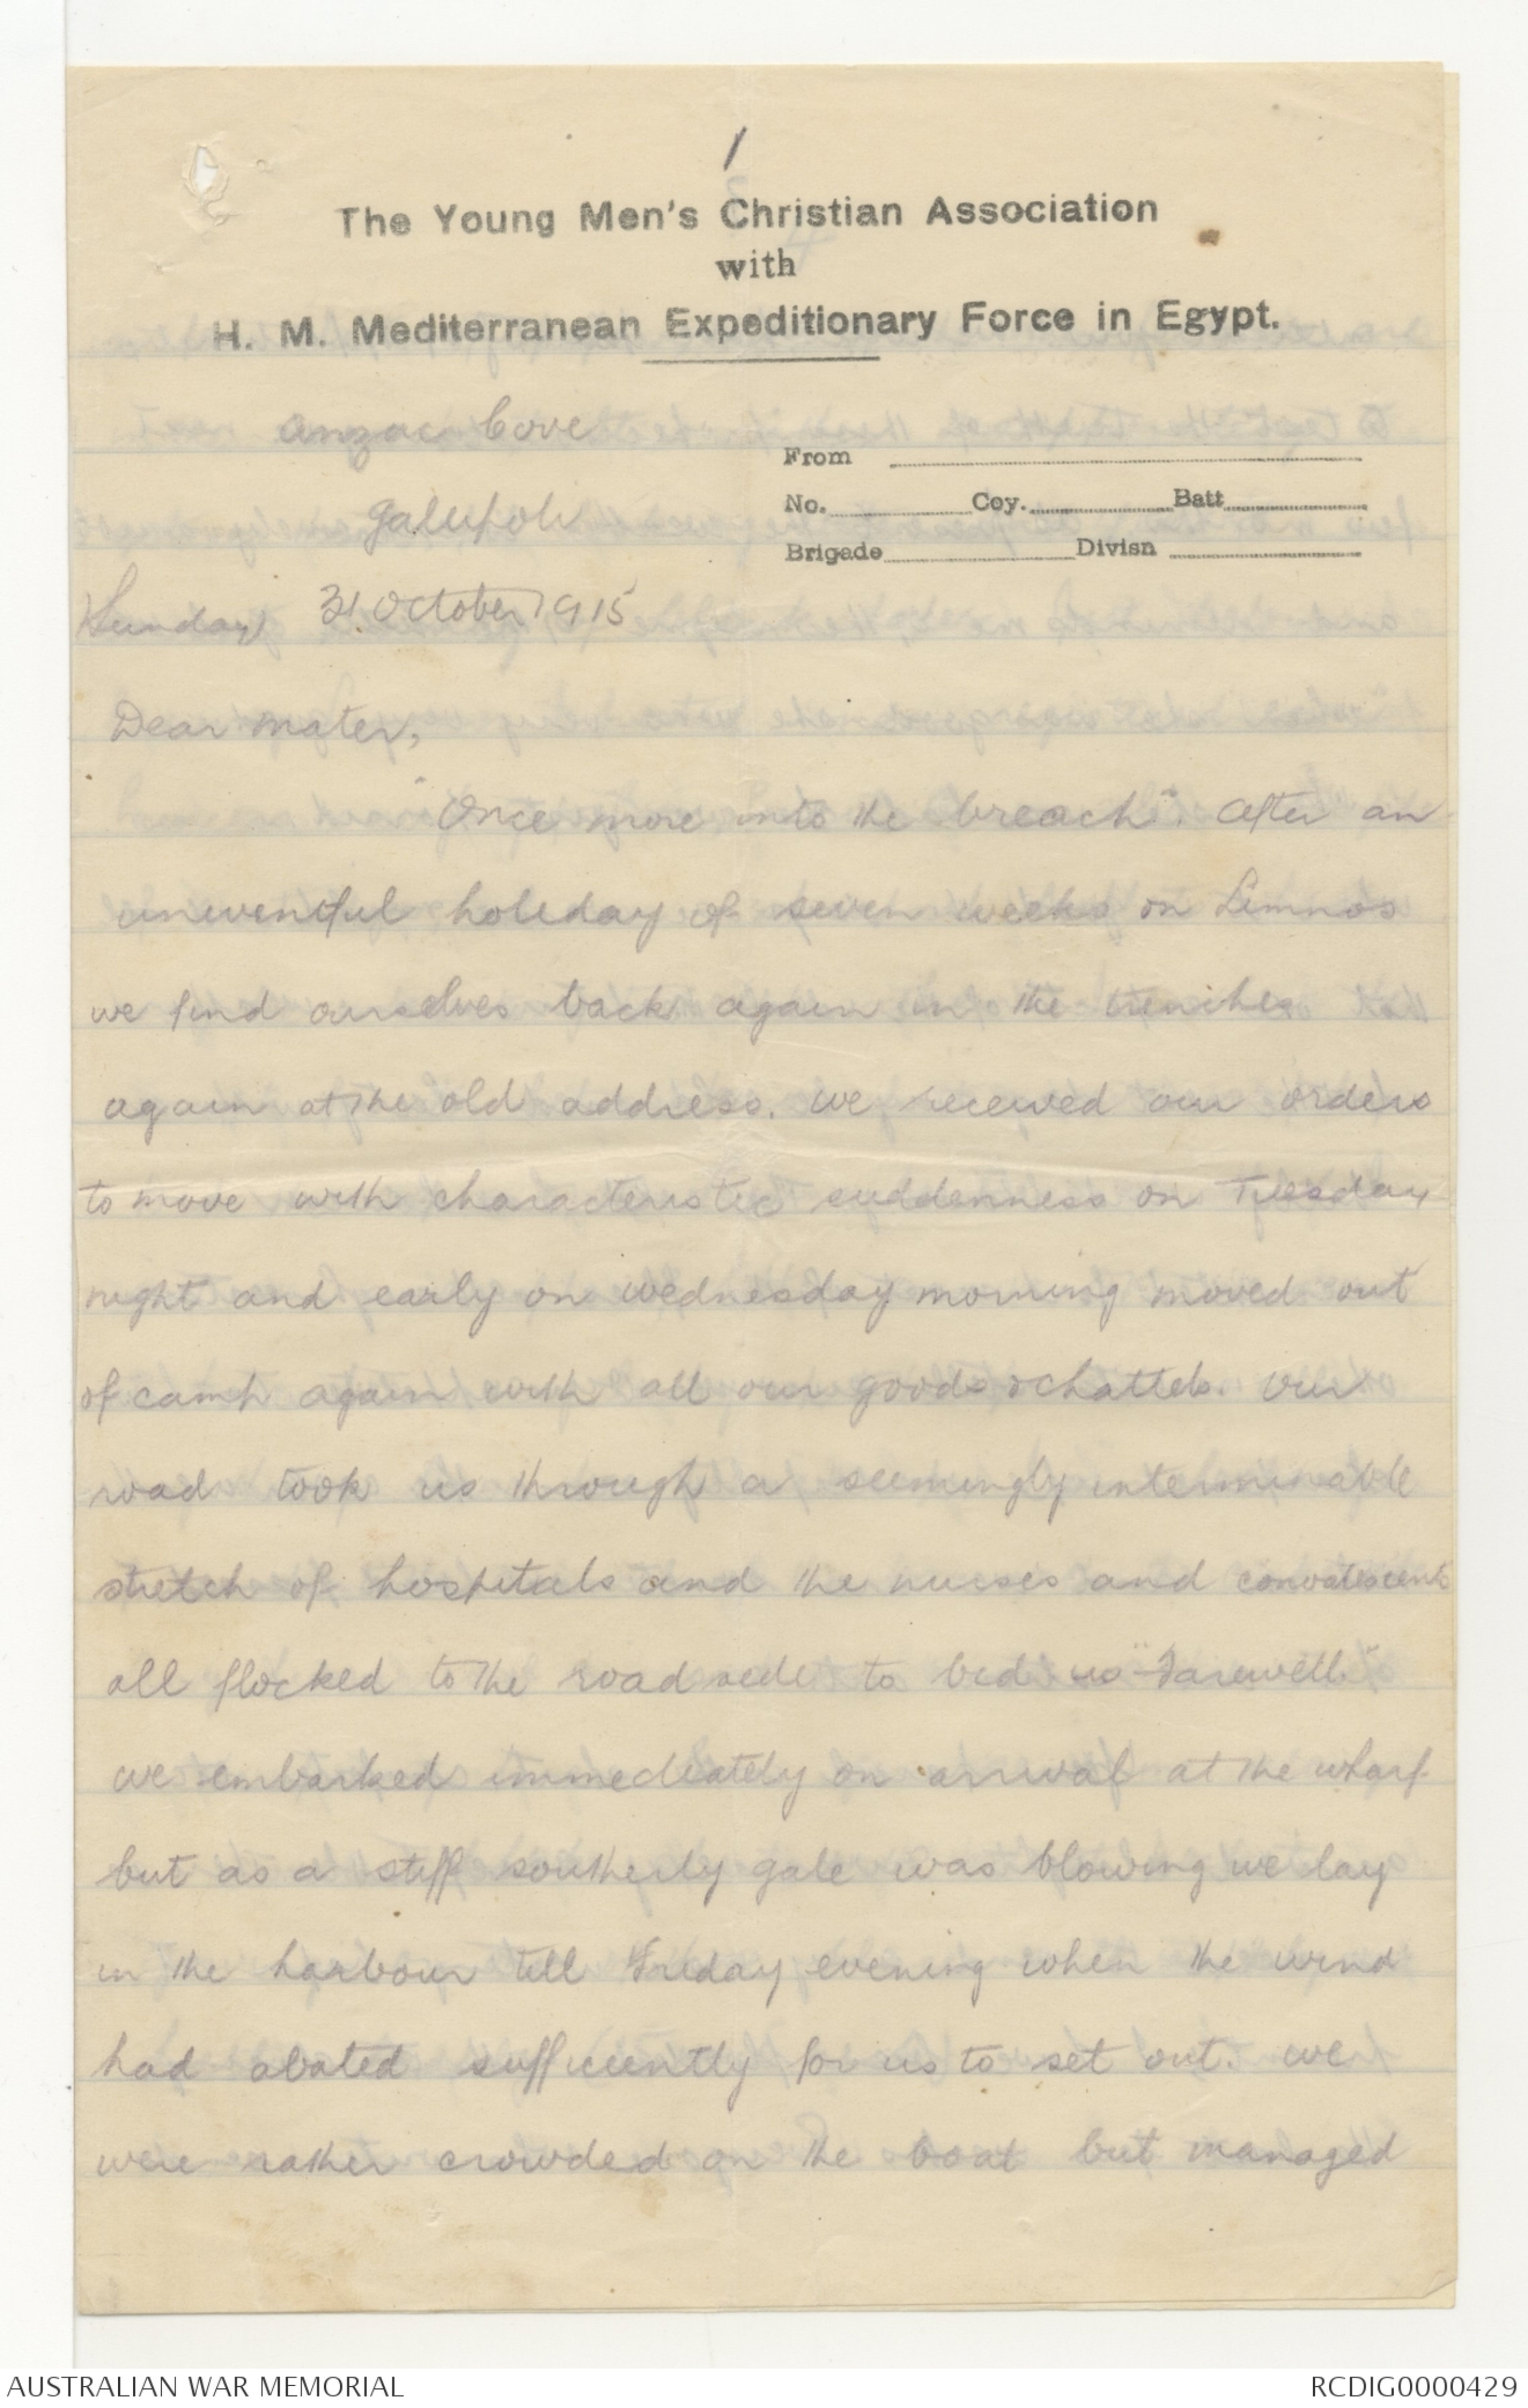 1
The Young Men's Christian Association
with
H. M. Mediterranean Expeditionary Force in Egypt.
Anzac Cove
From
Gallipoli
No. Coy. Batt
Brigade Divisn
Sunday 31 October 1915
Dear Mater,
"Once more into the breach". After an
uneventful holiday of seven weeks on Lemnos
we find ourselves back again in the trenches
again at the old address. We received our orders
to move with characteristic suddenness on Tuesday
night and early on Wednesday morning moved out
of camp again with all our goods & chattels. Our
road took us through a seemingly interminable
stretch of hospitals and the nurses and convalescents
all flocked to the road side to bid us "Farewell."
We embarked immediately on arrival at the wharf
but as a stiff southerly gale was blowing we lay
in the harbour till Friday evening when the wind
had abated sufficiently for us to set out. We
were rather crowded on the boat but managed
AUSTRALIAN WAR MEMORIAL
RCDIG0000429